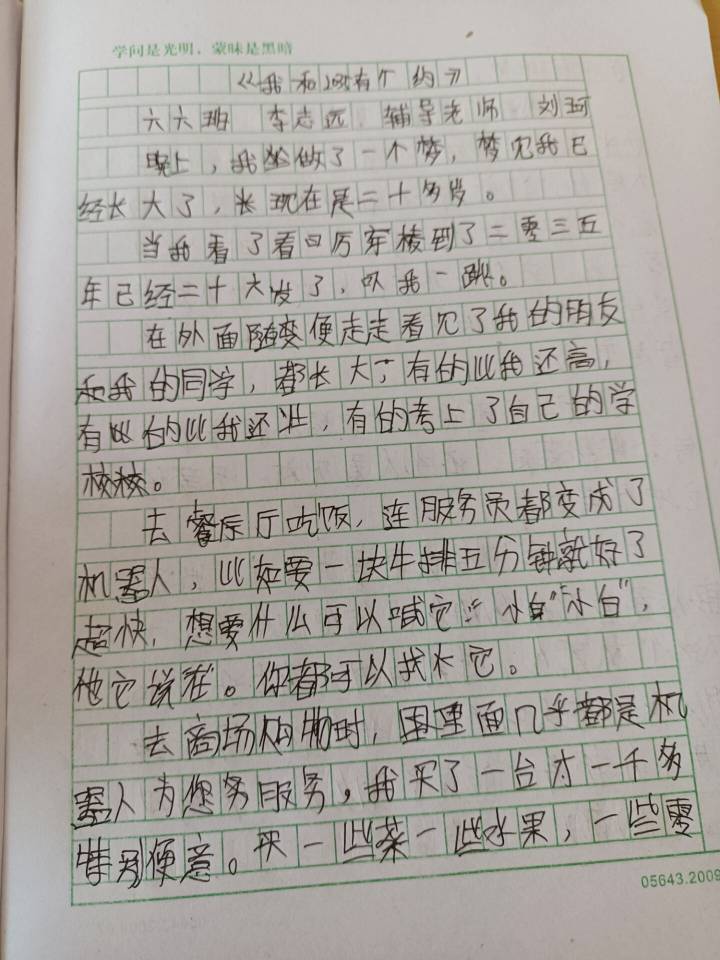 学问是光明，蒙昧是黑暗
《我和 有个约》
六六班 李志远 辅导老师 刘珂
晚上，我 做了一个梦，梦见我已
经长大了，长现在是二十多岁。
当我看了看日历 到了二零三五
年已经二十六岁了，吓我一跳。
在外面随变便走走看见了我的朋友
和我的同学，都长大了，有的比我还高，
有 的比我还壮，有的考上了自己的学
校校。
去餐 厅吃饭，连服务员都变成了
机器人，比如要一块牛排五分钟就好了
超快，想要什么可以喊它："小白""小白"，
他它说在。你都可以找 它。
去商场购物时， 里面几乎都是机
器人为您务服务，我买了一台才一千多
特别便意。买一些菜一些水果，一些零
05643.2009